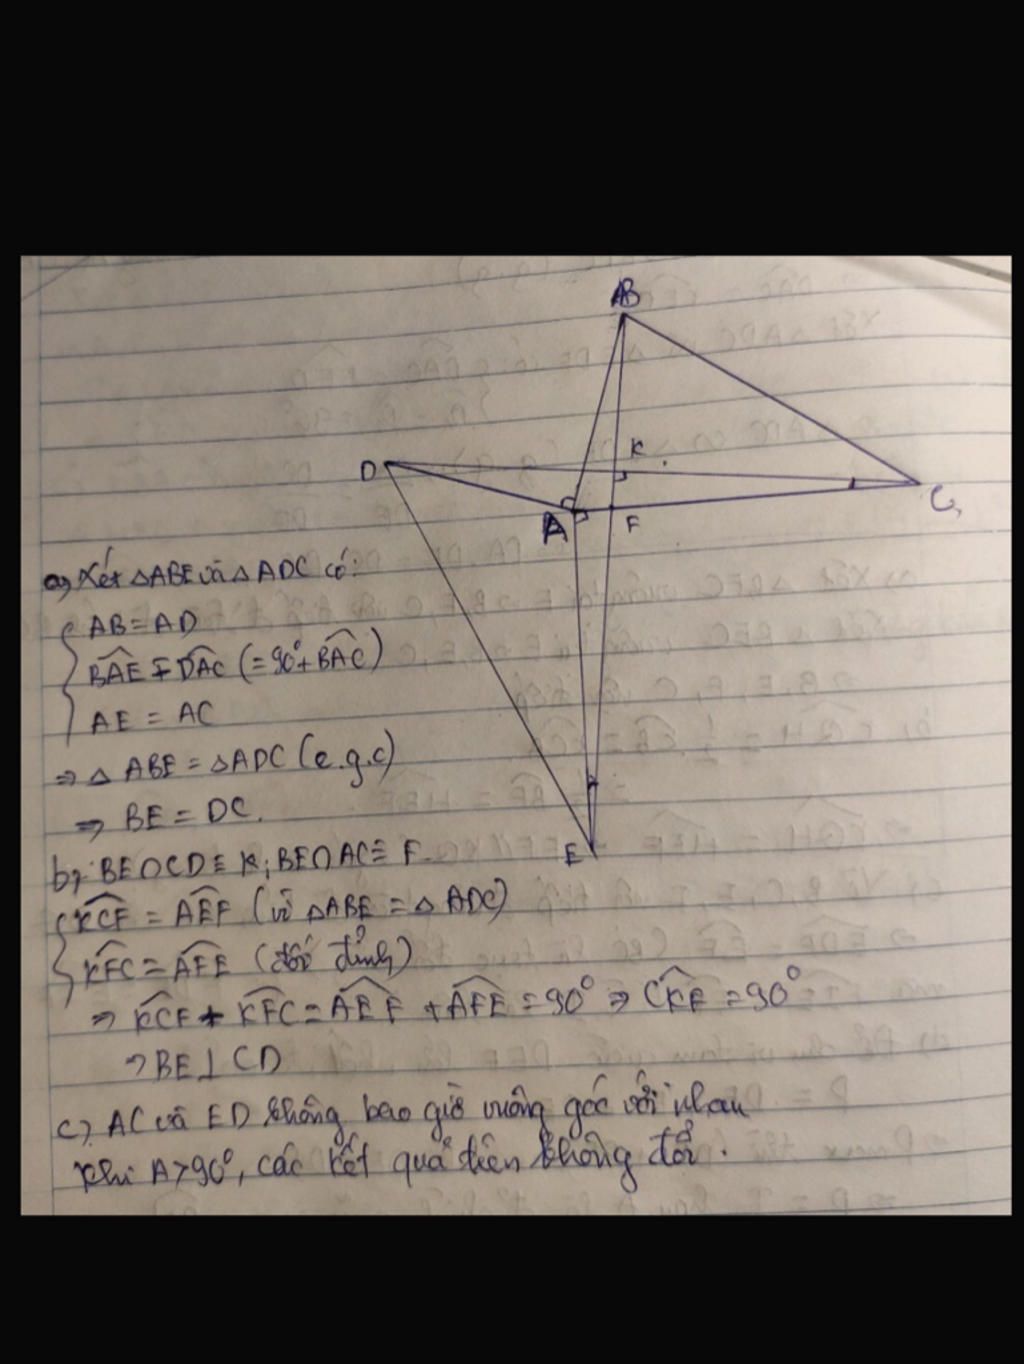 B
D
K
C
A
F
E
a, Xét △ABE và △ADC có:
AB = AD
BAE = DAC (= 90° + BAC)
AE = AC
⇒ △ ABE = △ADC (c.g.c)
⇒ BE = DC.
b, BE∩CD ≡ K; BE∩AC ≡ F
KCF = AEF (vì △ABE = △ADC)
KFC = AFE (đối đỉnh)
⇒ KCF + KFC = AEF + AFE = 90° ⇒ CKF = 90°
⇒ BE ⊥ CD
c, AC và ED không bao giờ vuông góc với nhau
khi A > 90°, các kết quả tiên không đổi.